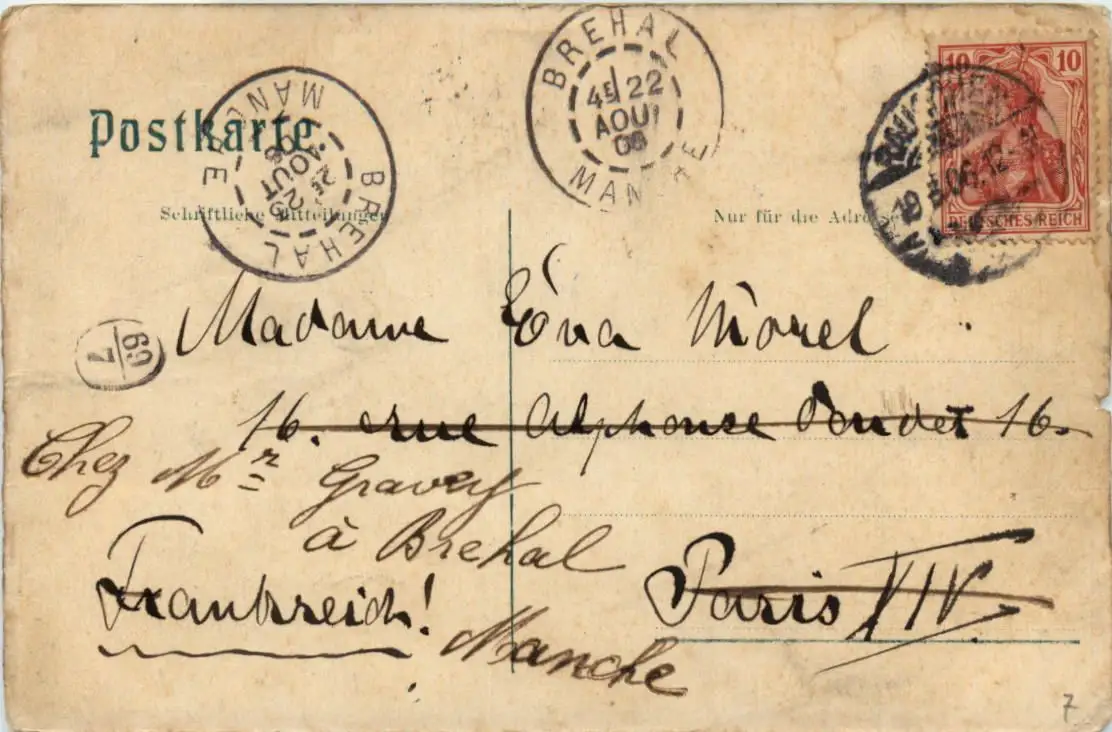 Postkarte
BREHAL
4E 22
AOUT
06
MANCHE
BREHAL
25
AOUT
06
MANCHE
10 10
DEUTSCHES REICH
Schriftliche Mitteilungen
Nur für die Adresse
Madame Eva Morel.
69
7
16. rue Alphonse Daudet 16.
Chez Mr Gravey
à Brehal
Frankreich!
Paris XIV.
Manche
7